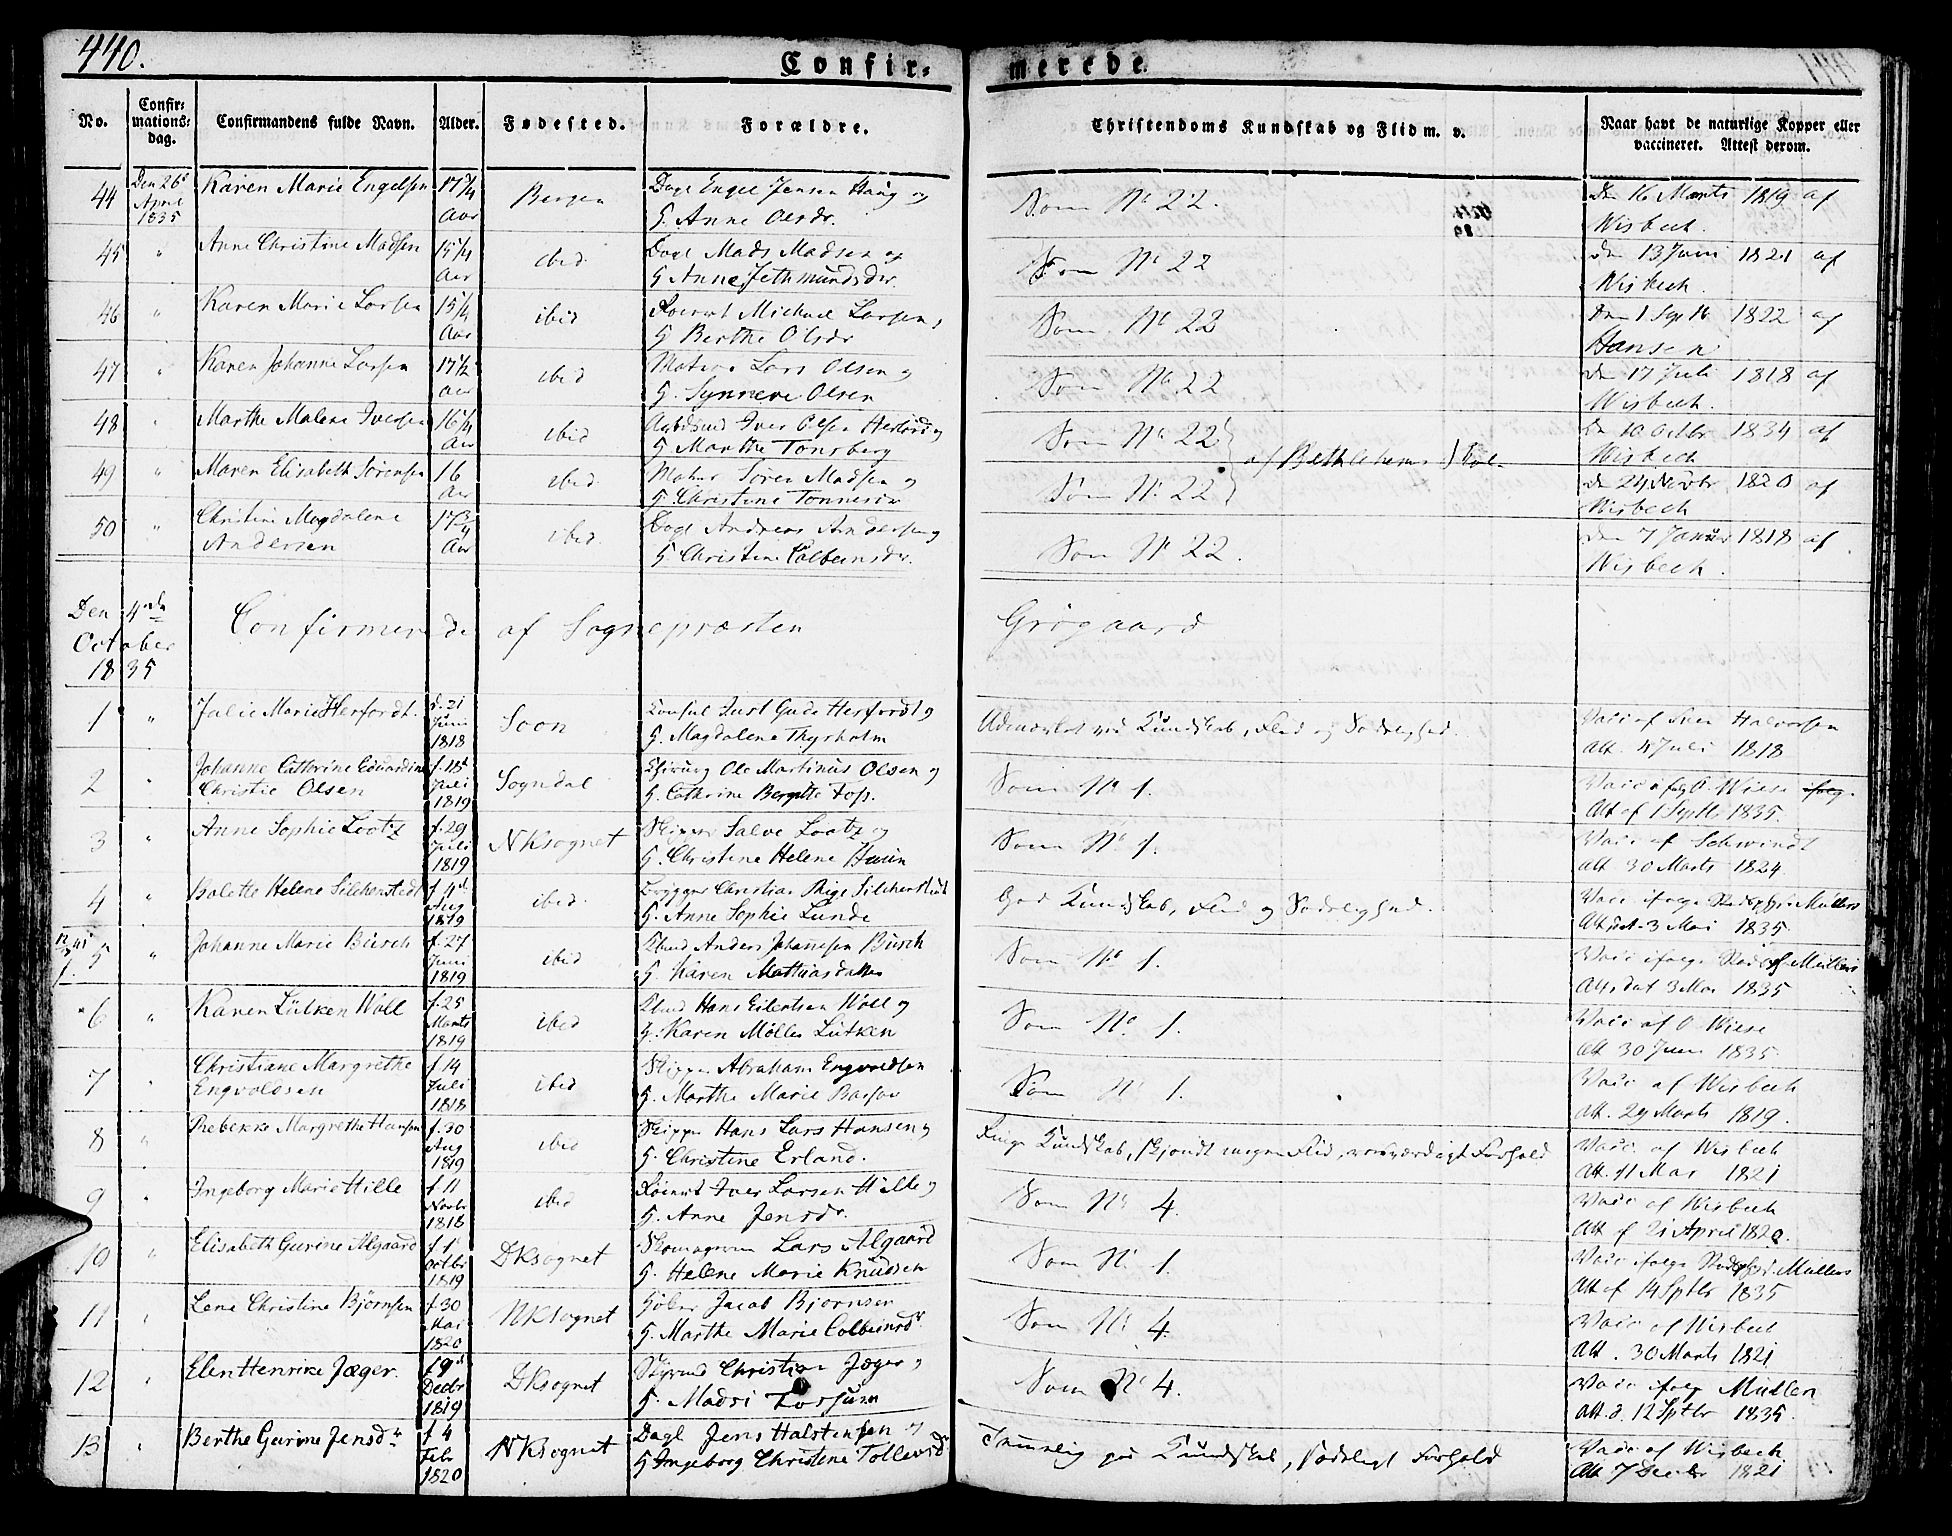 440.
Confir-
merede.
No.
Confir-
mations-
dag.
Confirmandens fulde Navn.
Alder.
Fødested.
Forældre.
Christendoms Kundskab og Flid m. v.
Naar havt de naturlige Kopper eller
vaccineret. Attest derom.
44 Den 26 April 1835 Karen Marie Engelsen 17 1/4 Aar Bergen Dagl Engel Jensen Haug og
H. Anne Olsdr. Som No 22. den 16 Marts 1819 af
Wisbech.
45 " Anne Christine Madsen 15 1/4 Aar ibid Dagl Mads Madsen og
H Anne Jethmundsdr. Som No 22 den 13 Juni 1821 af
Wisbech.
46 " Karen Marie Larsen 15 1/4 Aar ibid Michael Larsen,
H Berthe Olsdr Som No 22 den 1 Sept 1822 af
Hansen
47 " Karen Johanne Larsen 17 1/2 Aar ibid Matros Lars Olsen og
H. Synneve Olsen Som No 22 den 17 Juli 1818 af
Wisbech.
48 " Marthe Malene Iversen 16 1/4 Aar ibid Iver Olsen og
H Marthe Tonsberg Som No 22 af Bethlehems den 10 Octbr 1834 af
Wisbech
49 " Maren Elisabeth Sørensen 16 Aar ibid Matros Søren Madsen og
H. Christine Tønnesdr Som No 22 d 24 Novbr 1820 af
Wisbech
50 " Christine Magdalene
Andersen 17 3/4 Aar ibid Dagl Andreas Andersen og
H Christine Colbeinsdr. Som No 22. den 7 Januar 1818 af
Wisbech.
Den 4de
October
1835
Confirmerede af Sognepræsten Grøgaard
1 " Julie Marie Herfordt. f. 21 Juni 1818 Soon Consul Just Gude Herfordt og
H. Magdalene Thyrholm Udmærket god Kundskab, Flid og Sædelighed. Vacc af Halvorsen
Att. 4 Juli 1818
2 " Johanne Cathrine Eduardine
Christie Olsen f. 18 Juli 1819 Sogndal Chirurg Ole Martinus Olsen og
H. Cathrine Bergitte Foss. Som No 1. Vacc ifølg O. Wiese
Att af 1 Septb 1835.
3 " Anne Sophie Lootz f. 29 Juli 1819 NKsognet Skipper Salve Lootz og
H. Christine Helene Huun Som No 1. Vacc af Schwindt
Att 30 Marts 1824
4 " Bolette Helene Silchenstedt f 4de Aug 1819 ibid. Brygger Christian Silchenstedt
H. Anne Sophie Lunde God Kundskab, Flid og Sædelighed. Vacc ifølge Müllers
Att dat. 3 Mai 1835.
5 " Johanne Marie Büsch f. 27 Juni 1819 ibid Anders Johannsen Büsch
H. Karen Mathiasdatter Som No 1. Vacc ifølge Müllers
Att dat 3 Mai 1835
6 " Karen Lütken Woll f. 25 Marts 1819 ibid Hans Eilertsen Woll og
H. Karen Møller Lütken Som No. 1. Vacc af O Wiese
Att 30 Juni 1835
7 " Christiane Margrethe
Engvoldsen f. 14 Juli 1818 ibid Skipper Abraham Engvoldsen
H. Marthe Marie Bassøe Som No 1. Vacc af Wisbech
Att. 29 Marts 1819.
8 " Rebekke Margrethe Hansen f. 30 Aug 1819 ibid Skipper Hans Lars Hansen og
H. Christine Erland. Ringe Kundskab, skjøndt megen Flid, roesværdigt Forhold Vacc af Wisbech
Att. 11 Mai 1821
9 " Ingeborg Marie Hille f 11 Novbr 1818 ibid Iver Larsen Hille og
H. Anne Jensdr. Som No 4. Vacc af Wisbech
Att af 21 April 1820.
10 " Elisabeth Gurine Algaard f 1 Octbr 1819 DKsognet Skomagerm Lars Algaard
H. Helene Marie Knudsen Som No 1. Vacc ifølge Müllers
Att af 14 Sptbr 1835
11 " Lene Christine Bjørnsen f. 30 Mai 1820 NKsognet Jacob Bjørnsen
H. Marthe Marie Colbeinsdr. Som No 4. Vacc af Wisbech
Att. 30 Marts 1821
12 " Elen Henrike Jæger. f 9de Decbr 1819 DKsognet Christian Jæger og
H. Madsi Torsum Som No 4. Vacc ifølg Müller
att d. 12 Sptbr 1835.
13 " Berthe Gurine Jensdr f 4 Febr 1820 NKsognet Dagl Jens Halstensen og
H Ingeborg Christine Tollevsdr Temmelig god Kundskab, sædeligt Forhold Vacc af Wisbech
Att 7 Decbr 1821